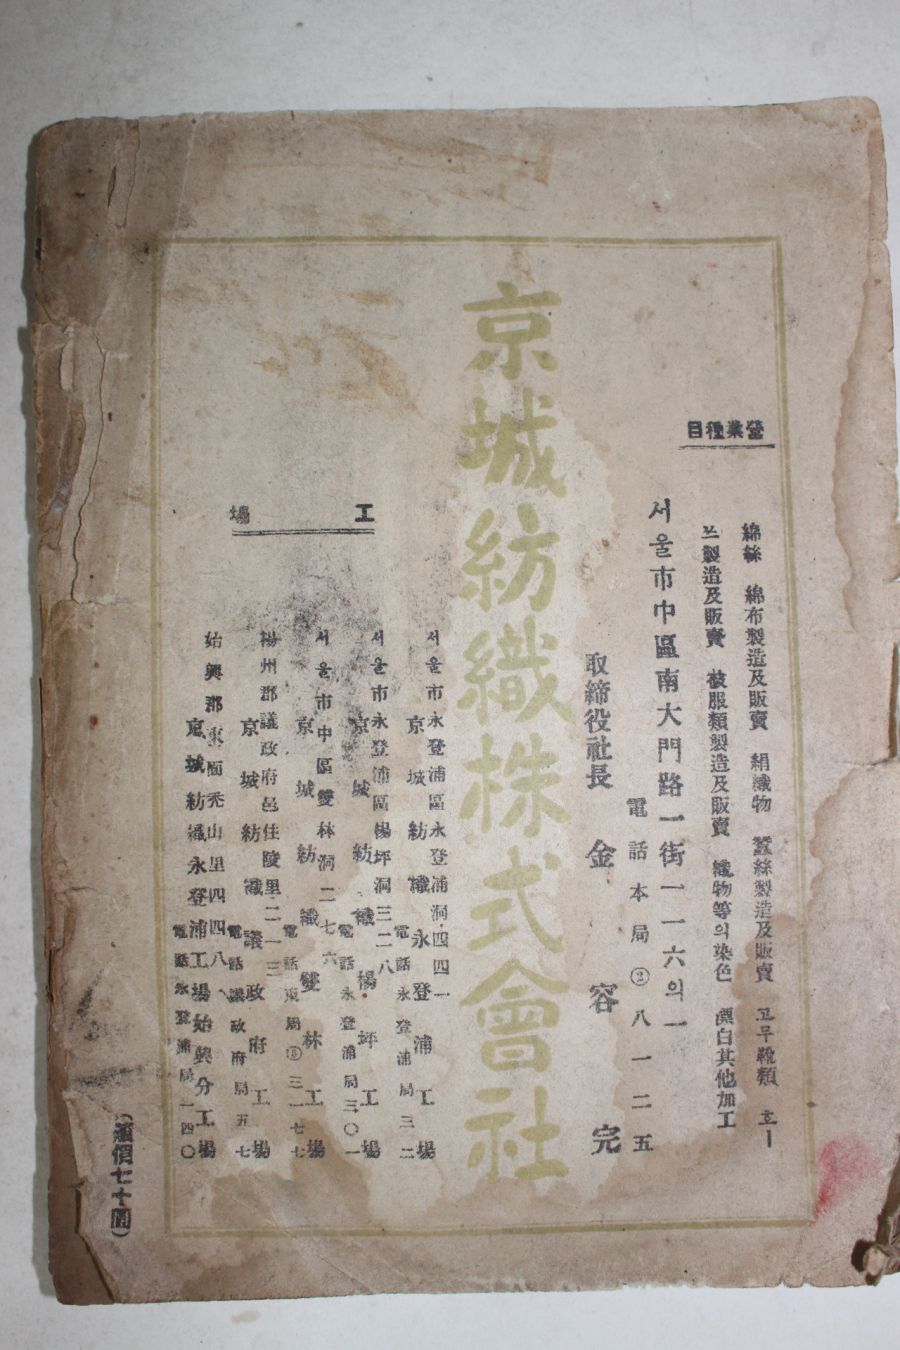 營業種目
綿絲 綿布製造及販賣 絹織物 蠶絲製造及販賣 고무靴類 호ー
쓰製造及販賣 被服類製造及販賣 織物等의染色 漂白其他加工
서울市中區南大門路一街一一六의一
電話本局②八一二五
取締役社長 金容完
京城紡織株式會社
工場
서울市永登浦區永登浦洞四四一
京城紡織永登浦工場
電話永登浦局三二
서울市永登浦區楊坪洞三二八
京城紡織楊坪工場
電話永登浦局三〇一
서울市中區雙林洞二七六
京城紡織雙林工場
電話東局⑤三一七七
楊州郡議政府邑佳陵里二一三
京城紡織議政府工場
電話議政府局五七
始興郡東面禿山里四四八
京城紡織永登浦工場始興分工場
電話永登浦局一四〇
(價七十圓)